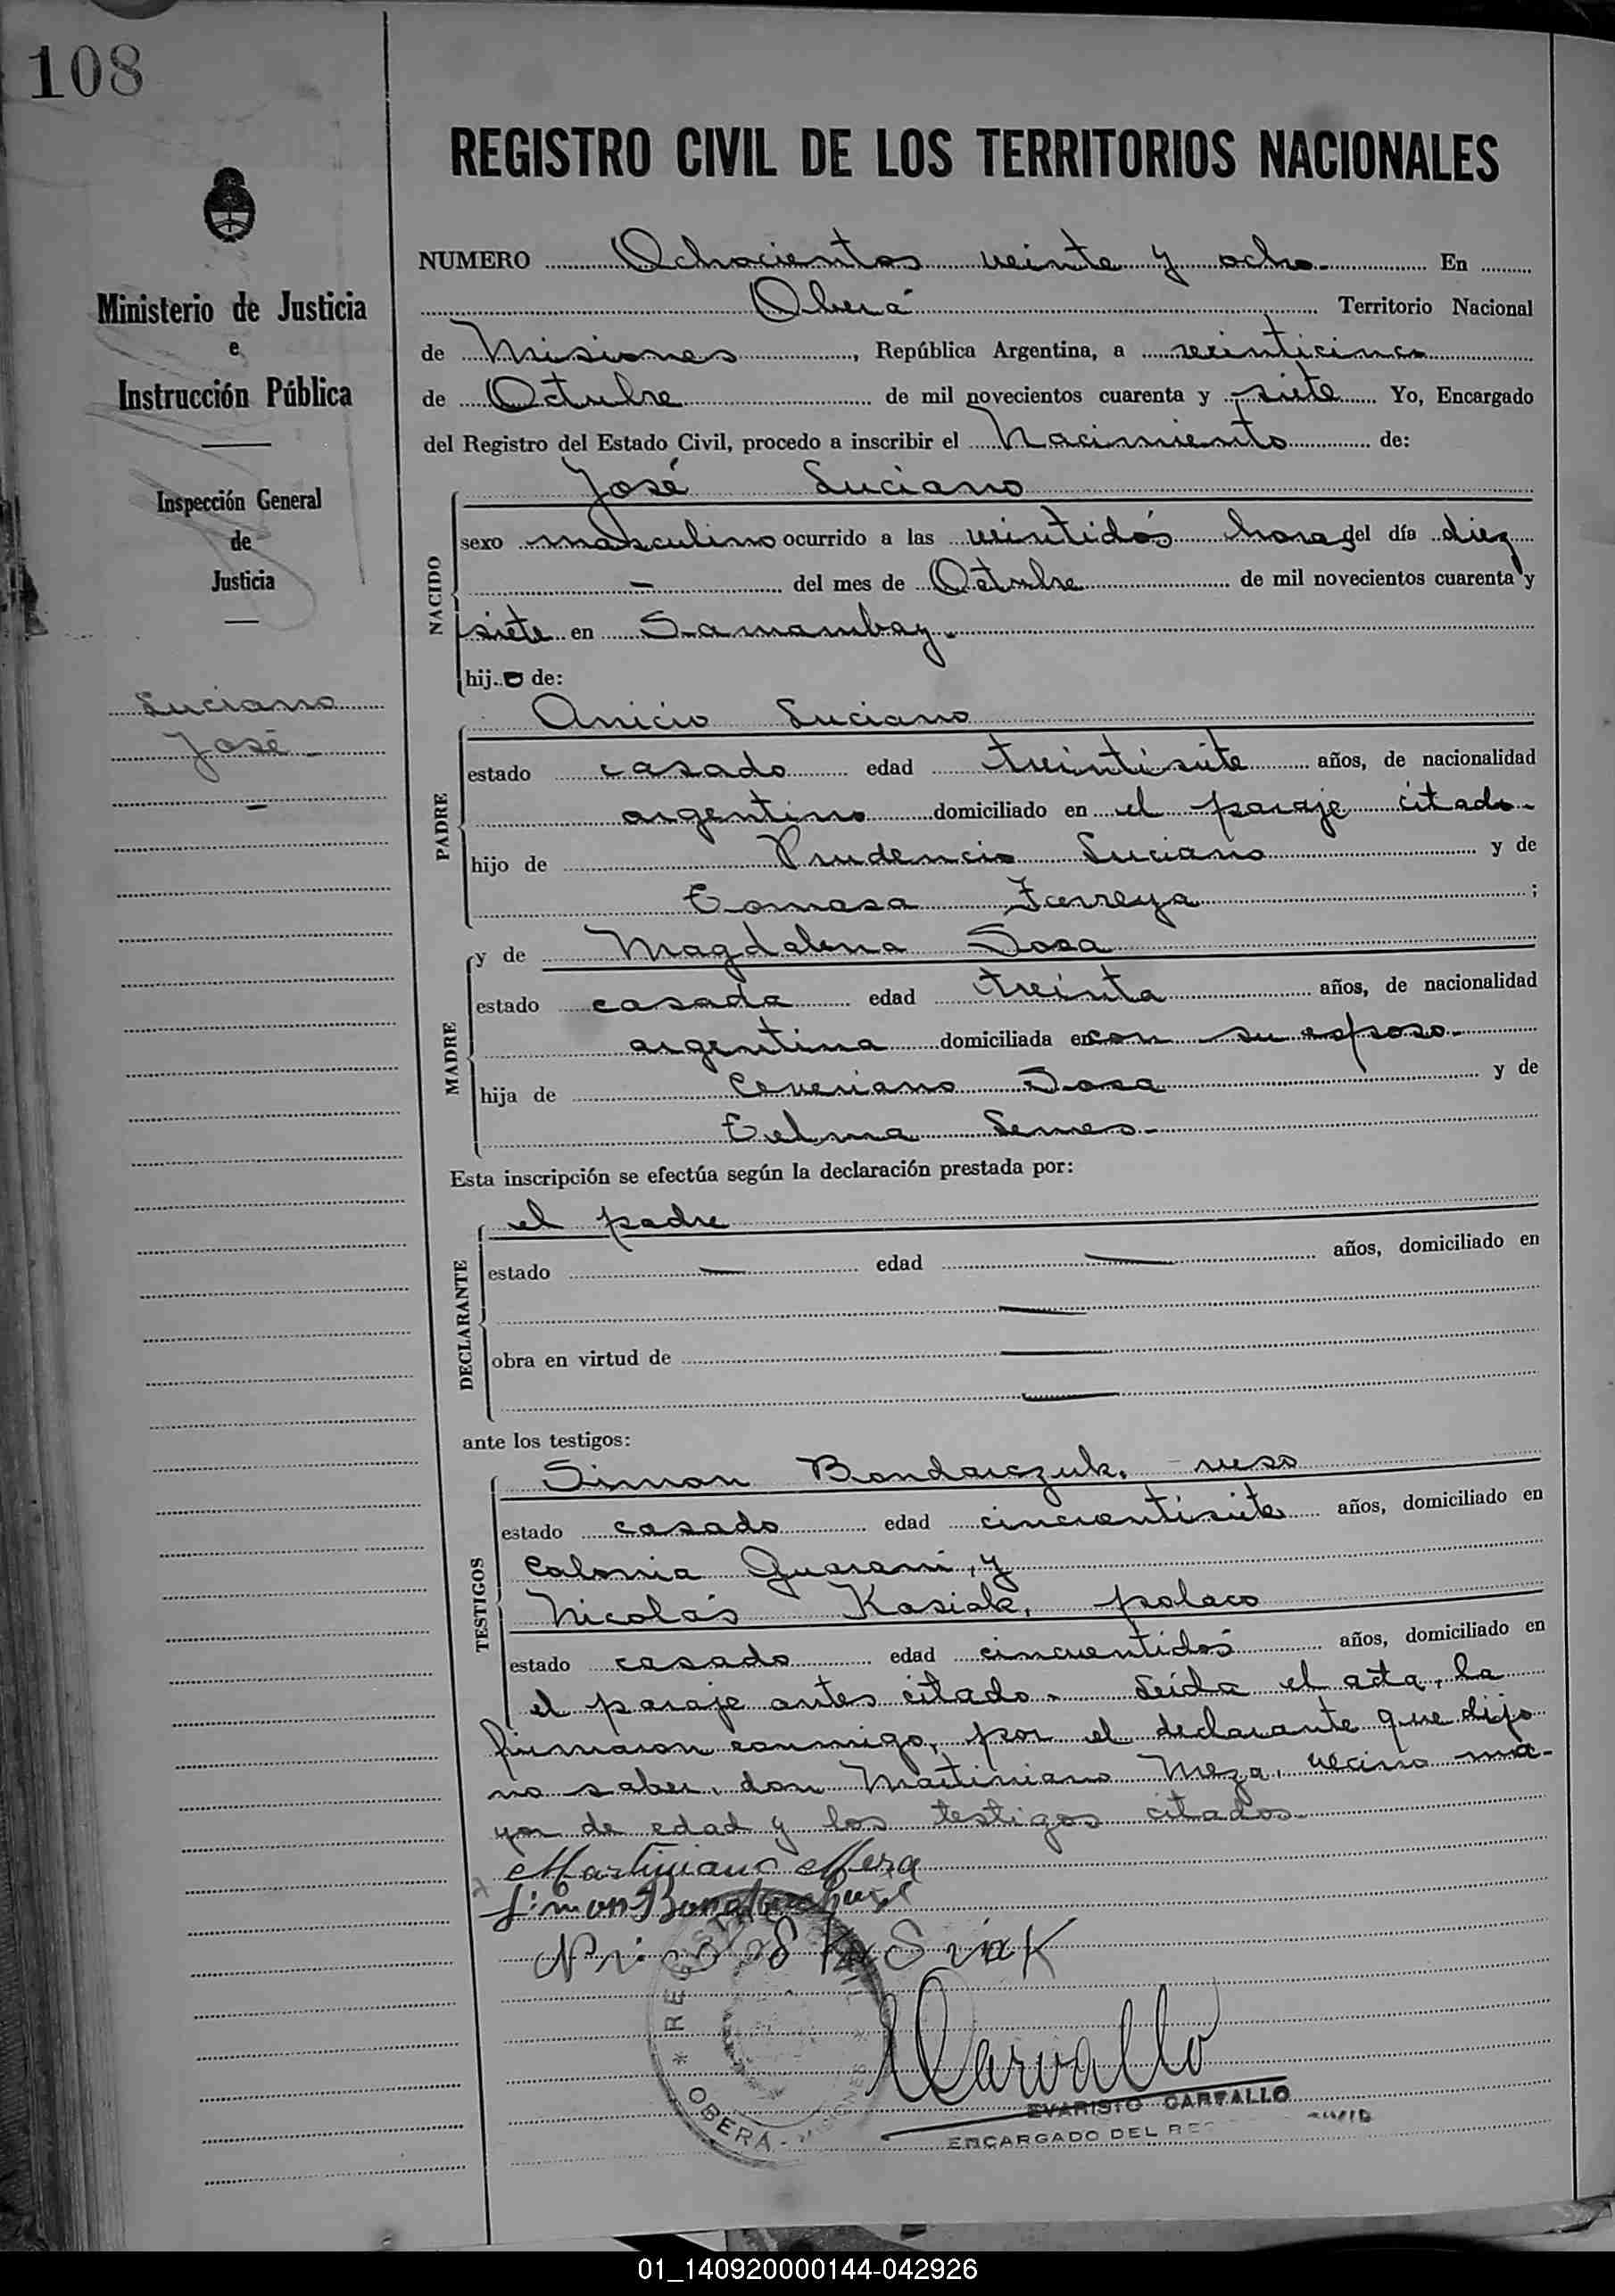 108
REGISTRO CIVIL DE LOS TERRITORIOS NACIONALES
Ministerio de Justicia
e
Instrucción Pública
Inspección General
de
Justicia
Luciano
José
NUMERO Ochocientos veinte y ocho. En
Oberá Territorio Nacional
de Misiones, República Argentina, a veinticinco
de Octubre de mil novecientos cuarenta y siete Yo, Encargado
del Registro del Estado Civil, procedo a inscribir el Nacimiento de:
NACIDO
José Luciano
sexo masculino ocurrido a las veintidós horas del día diez
del mes de Octubre de mil novecientos cuarenta y
siete en Samambay.
hijo de:
PADRE
Anicio Luciano
estado casado edad treintisiete años, de nacionalidad
argentino domiciliado en el paraje citado.
hijo de Prudencio Luciano y de
Tomasa Ferreyra;
MADRE
y de Magdalena Sosa
estado casada edad treinta años, de nacionalidad
argentina domiciliada en con su esposo.
hija de Ceveriano Sosa y de
Telma Lemes.
Esta inscripción se efectúa según la declaración prestada por:
DECLARANTE
el padre
estado edad años, domiciliado en
obra en virtud de
ante los testigos:
TESTIGOS
Simon Bondarczuk, ruso
estado casado edad cincuentisiete años, domiciliado en
Colonia Guarani, y
Nicolás Kasiak, polaco
estado casado edad cincuentidós años, domiciliado en
el paraje antes citado. Leída el acta, la
firmaron conmigo, por el declarante que dijo
no saber, don Martiniano Meza, vecino ma-
yor de edad y los testigos citados.
Martiniano Meza
Simon
Nicolas Kasiak
REGISTRO
OBERÁ - MISIONES
Carvallo
EVARISTO CARVALLO
ENCARGADO DEL
01_140920000144-042926